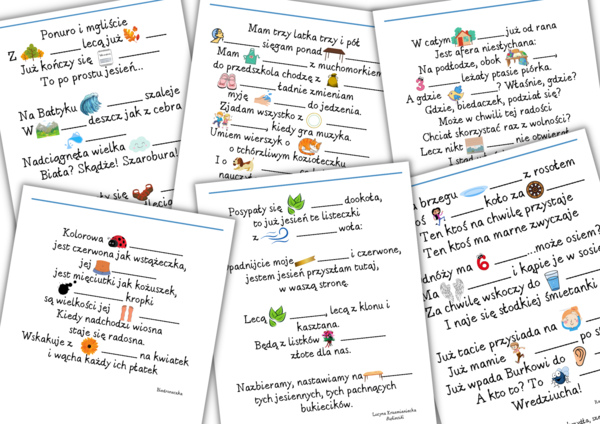 Ponuro i mgliście
Z ________ lecą już
Już kończy się ________
To po prostu jesień...
Na Bałtyku ________ szaleje
W ________ deszcz jak z cebra
Nadciągnęta wielka
Biała? Skądże! Szarobura!
Mam trzy latka trzy i pół
________ sięgam ponad
Mam ________ z muchomorkiem
do przedszkola chodzę z
________ ładnie zmieniam
myję ________ do jedzenia.
Zjadam wszystko z
________, kiedy gra muzyka.
Umiem wierszyk o
o tchórzliwym koziołeczku
I o
W całym ________ już od rana
Jest afera niesłychana:
Na podłodze, obok
3 ________ leżały ptasie piórka.
A gdzie ________? Właśnie, gdzie?
Gdzie, biedaczek, podział się?
Może w chwilej tej radości
Chciał skorzystać raz z wolności?
Lecz nikt ________ nie otwierał
Kolorowa ________
jest czerwona jak wstążeczka,
jej ________
jest mięciutki jak kożuszek,
________ kropki
są wielkości jej ________
Kiedy nadchodzi wiosna
staje się radosna.
Wskakuje z ________ na kwiatek
i wącha każdy ich płatek
Biedroneczka
Posypały się ________ dookoła,
to już jesień te listeczki
z ________ woła:
________ i czerwone,
jestem jesień przyszłam tutaj,
w waszą stronę.
Lecą ________, lecą z klonu i
kasztana.
Będą z listków ________
złote dla nas.
Nazbieramy, nastawiamy na ________
tych jesiennych, tych pachnących
bukiecików.
Lucyna Krzemieniecka
brzegu ________ z rosołem
________ koło za
Ten ktoś na chwilę przystaje
Ten ktoś ma marne zwyczaje
nóży ma 6 ________...może osiem?
Ma ________ i kąpie je w sosie
Za chwilę wskoczy do
I naje się słodkiej śmietanki
Już tacie przysiada na
Już mamie ________ po
Już wpada Burkowi do
A kto to? To ________
Wredziucha!